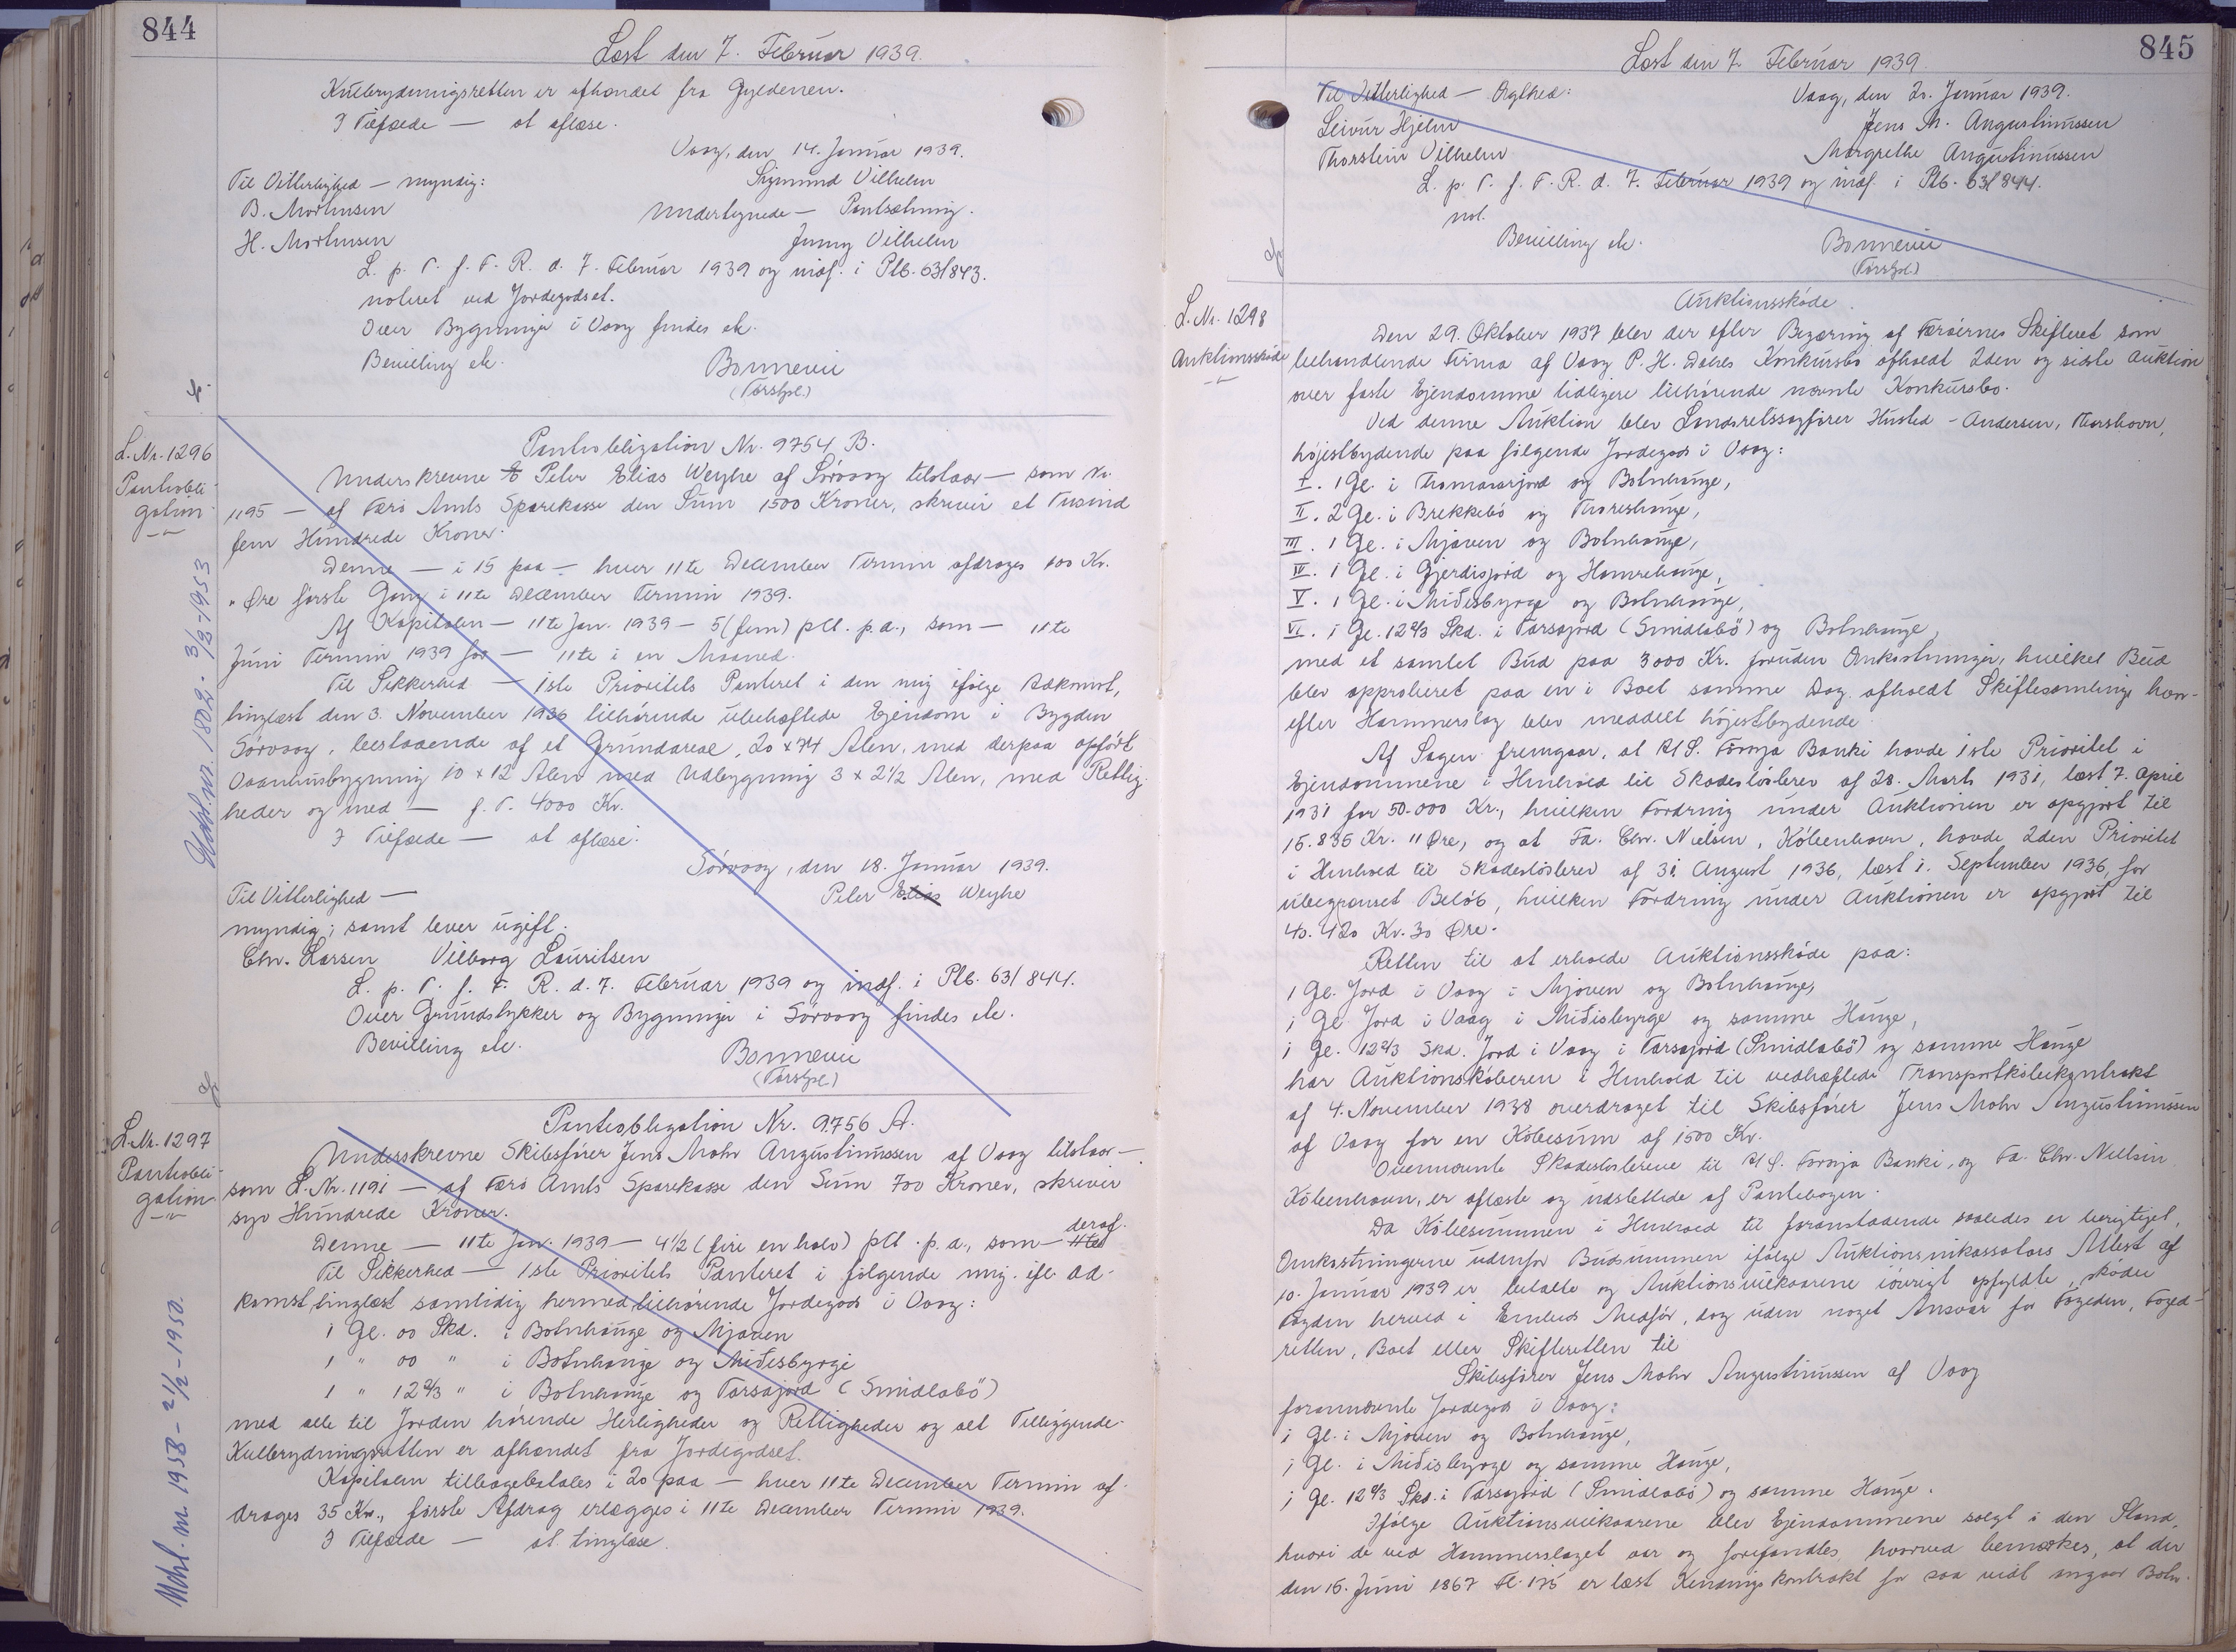 844
Læst den 7. Februar 1939.
Kulbrydningsretten er afhændet fra Gyldenen.
I Tilfælde — at aflæse.
Vaag, den 14. Januar 1939.
Til Vitterlighed — myndig:
Sigmund Vilhelm
B. Morthensen
Undertegnede — Pantsætning.
H. Morthensen
Jenny Vilhelm
L. p. T. f. F. R. d. 7. Februar 1939 og indf. i Ptb. 63/843.
noteret ved Jordegodset.
Over Bygninger i Vaag findes ell.
Bevilling ell.
Bonnevie
(Torstpl.)
L. Nr. 1296
Pantobli-
gation
Pantobligation Nr. 9754 B.
Underskrevne E Peter Elias Weyhe af Sørvaag tilstaar — som Nr.
1195 — af Færø Amts Sparekasse den Sum 1500 Kroner, skriver et Tusind
fem Hundrede Kroner.
Denne — i 15 paa — hver 11te December Termin afdrages 100 Kr.
" Øre første Gang i 11te December Termin 1939.
Af Kapitalen — 11te Jan. 1939 — 5 (fem) pCt. p.a., som — 11te
Juni Termin 1939 for — 11te i en Maaned.
Til Sikkerhed — 1ste Prioritets Panteret i den mig ifølge Adkomst,
tinglæst den 3. November 1936 tilhørende ubehæftede Ejendom i Bygden
Sørvaag, bestaaende af et Grundareal, 20 x 74 Alen, med derpaa opført
Vaaningsbygning 10 x 12 Alen med Udbygning 3 x 2½ Alen, med Rettig-
heder og med — f. T. 4000 Kr.
I Tilfælde — at aflæse.
Sørvaag, den 18. Januar 1939.
Til Vitterlighed —
Peter Elias Weyhe
myndig; samt lever ugift.
Chr. Larsen Vilborg Lauritsen
L. p. T. f. F. R. d. 7. Februar 1939 og indf. i Ptb. 63/844.
Over Grundstykker og Bygninger i Sørvaag findes ell.
Bevilling ell.
Bonnevie
(Torstpl.)
Udsl. nr. 1802 - 3/2-1953
L. Nr. 1297
Pantobli-
gation
Pantobligation Nr. 9756 A.
Underskrevne Skibsfører Jens Mohr Augustinussen af Vaag tilstaar —
som L. Nr. 1191 — af Færø Amts Sparekasse den Sum 700 Kroner, skriver
syv Hundrede Kroner.
Denne — 11te Jan. 1939 — 4½ (fire en halv) pCt. p.a., som — 11te deraf.
Til Sikkerhed — 1ste Prioritets Panteret i følgende mig ifl. Ad-
komst, tinglæst samtidig hermed, tilhørende Jordegods i Vaag:
1 Gl. 00 Skd. i Botnhauge og Mjáven
1 " 00 " i Botnhauge og Miðisbyrgi
1 " 12 2/3 " i Botnhauge og Tarsajord (Smidlabø)
med alle til Jorden hørende Herligheder og Rettigheder og alt Tilliggende.
Kulbrydningsretten er afhændet fra Jordegodset.
Kapitalen tilbagebetales i 20 paa — hver 11te December Termin af-
drages 35 Kr., første Afdrag erlægges i 11te December Termin 1939.
I Tilfælde — at tinglæse.
Udsl. nr. 1958 - 2 1/2 - 1950.
845
Læst den 7. Februar 1939.
Til Vitterlighed — Ægthed:
Vaag, den 20. Januar 1939.
Leivur Hjelm
Jens M. Augustinussen
Thorstein Vilhelm
Margrethe Augustinussen
L. p. T. f. F. R. d. 7. Februar 1939 og indf. i Ptb. 63/844.
not.
Bevilling ell.
Bonnevie
(Torstpl.)
L. Nr. 1298
Auktionsskøde
Auktionsskøde.
Den 29. Oktober 1937 blev der efter Begæring af Færøernes Skifteret som
behandlende Firma af Vaag P. H. Dahls Konkursbo afholdt 2den og sidste Auktion
over faste Ejendomme tidligere tilhørende nævnte Konkursbo.
Ved denne Auktion blev Landsretssagfører Husted-Andersen, Thorshavn,
højestbydende paa følgende Jordegods i Vaag:
I. 1 Gl. i Thomararjord og Botnhauge,
II. 2 Gl. i Brekkebø og Thoreshauge,
III. 1 Gl. i Mjáven og Botnhauge,
IV. 1 Gl. i Gjerdisjord og Homrehauge,
V. 1 Gl. i Miðisbyrge og Botnhauge,
VI. 1 Gl. 12 2/3 Skd. i Tarsajord (Smidlabø) og Botnhauge,
med et samlet Bud paa 3000 Kr. foruden Omkostninger, hvilket Bud
blev approberet paa en i Boet samme Dag afholdt Skiftesamling hvor-
efter Hammerslag blev meddelt højestbydende.
Af Sagen fremgaar, at A/S. Føroya Banki havde 1ste Prioritet i
Ejendommene i Henhold til Skadesløsbrev af 28. Marts 1931, læst 7. April
1931 for 50.000 Kr., hvilken Fordring under Auktionen er opgjort til
15.835 Kr. 11 Øre, og at Fa. Chr. Nielsen, København, havde 2den Prioritet
i Henhold til Skadesløsbrev af 31. August 1936, læst 1. September 1936, for
ubegrænset Beløb, hvilken Fordring under Auktionen er opgjort til
40.420 Kr. 30 Øre.
Retten til at erholde Auktionsskøde paa:
1 Gl. Jord i Vaag i Mjáven og Botnhauge,
1 Gl. Jord i Vaag i Miðisbyrge og samme Hauge,
1 Gl. 12 2/3 Skd. Jord i Vaag i Tarsajord (Smidlabø) og samme Hauge
har Auktionskøberen i Henhold til vedhæftede Transportkøbekontrakt
af 4. November 1938 overdraget til Skibsfører Jens Mohr Augustinussen
af Vaag for en Købesum af 1500 Kr.
Ovennævnte Skadesløsbreve til A/S. Føroya Banki, og Fa. Chr. Nielsen
København, er aflæste og udslettede af Pantebogen.
Da Købesummen i Henhold til foranstaaende saaledes er berigtiget,
Omkostningerne udenfor Budsummen ifølge Auktionsinkassators Attest af
10. Januar 1939 er betalte og Auktionsvilkaarene iøvrigt opfyldte, skøder
Fogden herved i Embeds Medfør, dog uden noget Ansvar for Fogeden, Foged-
retten, Boet eller Skifteretten til
Skibsfører Jens Mohr Augustinussen af Vaag
forannævnte Jordegods i Vaag:
1 Gl. i Mjáven og Botnhauge,
1 Gl. i Miðisbyrge og samme Hauge,
1 Gl. 12 2/3 Skd. i Tarsajord (Smidlabø) og samme Hauge.
Ifølge Auktionsvilkaarene blev Ejendommene solgt i den Stand,
hvori de ved Hammerslaget var og forefandtes, hvorved bemærkes, at der
den 15. Juni 1867 Fl. 175 er læst Kendingskontrakt for saa vidt angaar Botn-